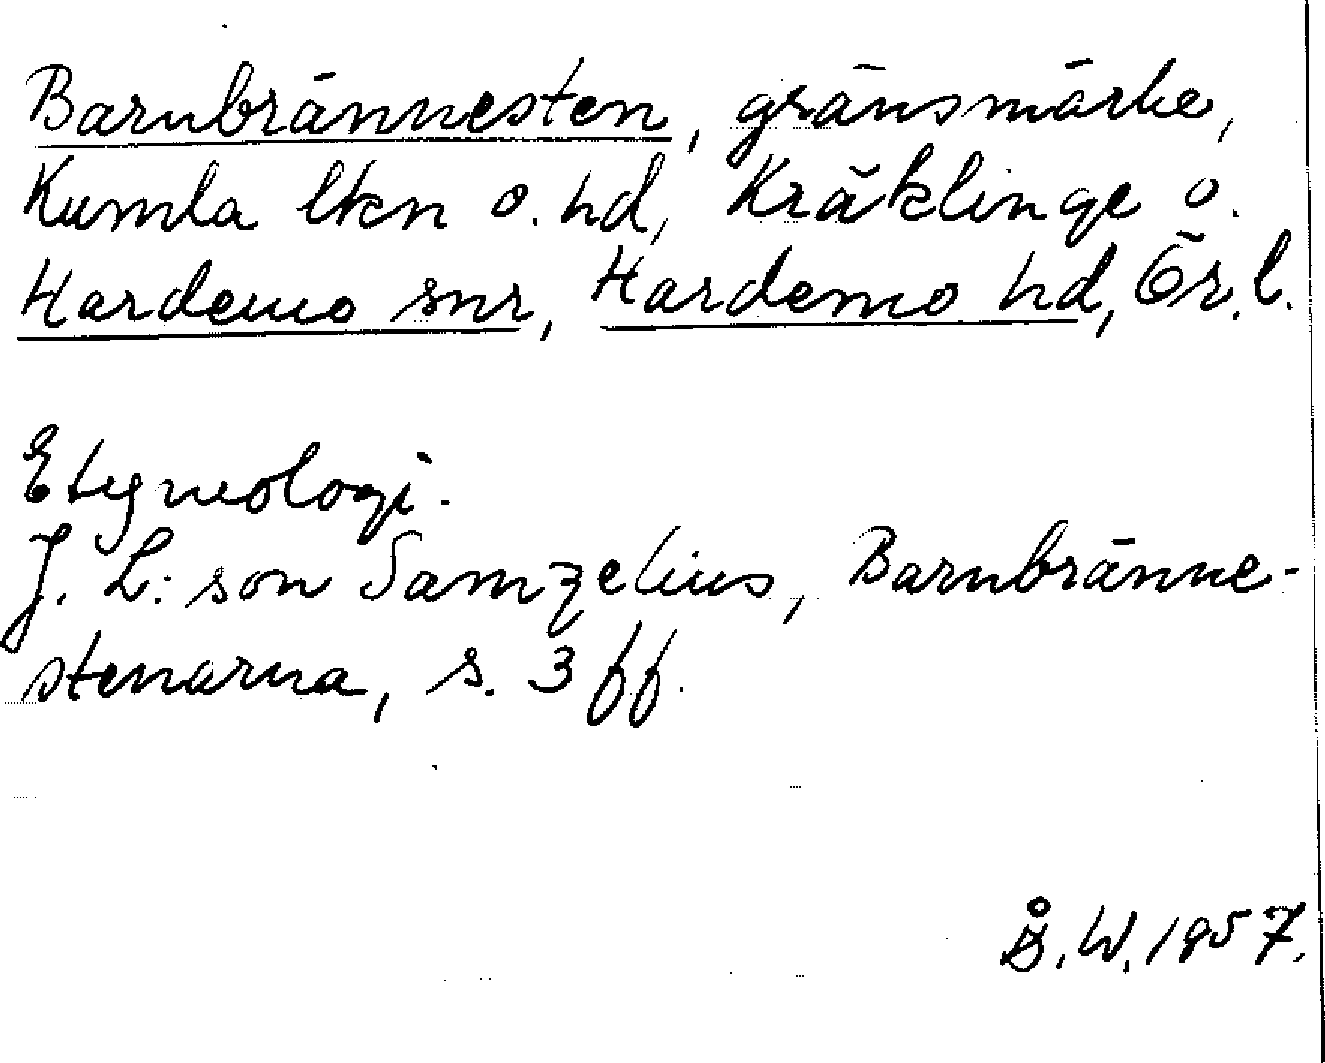 Barnbrännesten, gränsmärke,
Kumla lkn o. hd, Kräklinge o.
Hardemo snr, Hardemo hd, Ör. l.
Etymologi.
J. L:son Samzelius, Barnbränne-
stenarna, s. 3 ff.
Å. W. 1957.